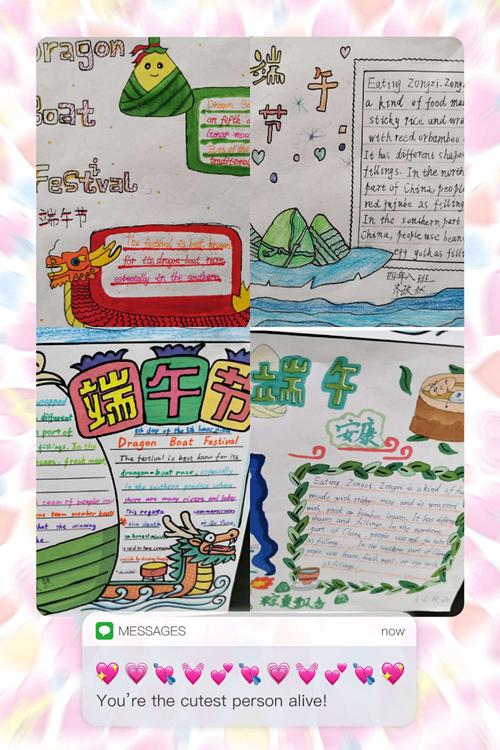 Dragon
Boat
Festival
端午节
Dragon Bo
on fifth
lunar mon
It is of the
traditional
The festival is best known
for its dragon-boat races,
especially in the southern
端午
节
Eating Zongzi. Zong
a kind of food ma
sticky rice and wra
with reed or bamboo
It has different shapes
fillings. In the north
part of China, people
red jujube as filling
In the southern part
China, people use bean
egg yolkas filli
四年八班
端午节
wrapped
different
part of
fresh mea
5th day of the 5th lunar
Dragon Boat Festival
The festival is best know for its
drangon-boat race, especially
in the southern province where
there are many rivers and lakes
This regatta commemorates
the death of Qu Yuan,
team of people ro
one team member beats
that the winning
端午
安康
Eating Zongzi. Zongzi is a kind of f
made with sticky rice and is wrapped
with reed or bamboo leaves. It has differen
shapes and fillings. In the northern
part of China, people use red ju
as filling. In the southern part of
people use beans, fresh meat, or egg
as filling
粽夏飘香
MESSAGES
now
You're the cutest person alive!